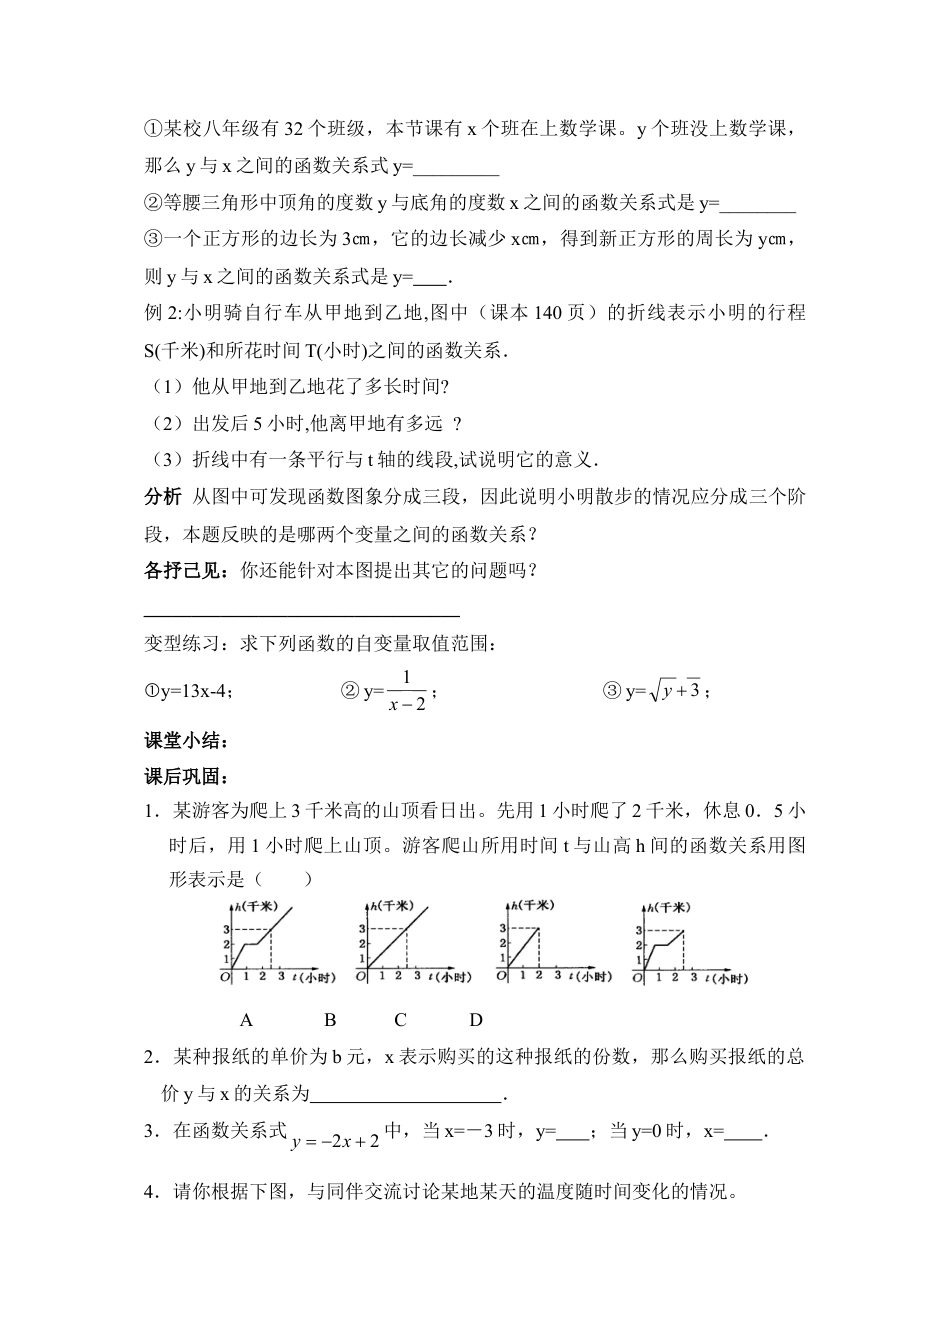 ①某校八年级有 32 个班级，本节课有 x 个班在上数学课。y 个班没上数学课，
那么 y 与 x 之间的函数关系式 y=_________
②等腰三角形中顶角的度数 y 与底角的度数 x 之间的函数关系式是 y=________
③一个正方形的边长为 3㎝，它的边长减少 x㎝，得到新正方形的周长为 y㎝，
则 y 与 x 之间的函数关系式是 y=___．
例 2:小明骑自行车从甲地到乙地,图中（课本 140 页）的折线表示小明的行程
S(千米)和所花时间 T(小时)之间的函数关系．
（1）他从甲地到乙地花了多长时间?
（2）出发后 5 小时,他离甲地有多远 ?
（3）折线中有一条平行与 t 轴的线段,试说明它的意义．
分析 从图中可发现函数图象分成三段，因此说明小明散步的情况应分成三个阶
段，本题反映的是哪两个变量之间的函数关系？
各抒己见：你还能针对本图提出其它的问题吗？
_________________________________
变型练习：求下列函数的自变量取值范围：
①y=13x-4； ② y=1/(x−2)； ③ y=√(y+3)；
课堂小结：
课后巩固：
1．某游客为爬上 3 千米高的山顶看日出。先用 1 小时爬了 2 千米，休息 0．5 小
时后，用 1 小时爬上山顶。游客爬山所用时间 t 与山高 h 间的函数关系用图
形表示是（　　）
h(千米) 3 2 1 O 1 2 3 t(小时)
h(千米) 3 2 1 O 1 2 3 t(小时)
h(千米) 3 2 1 O 1 2 3 t(小时)
h(千米) 3 2 1 O 1 2 3 t(小时)
A B C D
2．某种报纸的单价为 b 元，x 表示购买的这种报纸的份数，那么购买报纸的总
价 y 与 x 的关系为____________________．
3．在函数关系式 y=−2x+2 中，当 x=－3 时，y=___；当 y=0 时，x=____．
4．请你根据下图，与同伴交流讨论某地某天的温度随时间变化的情况。